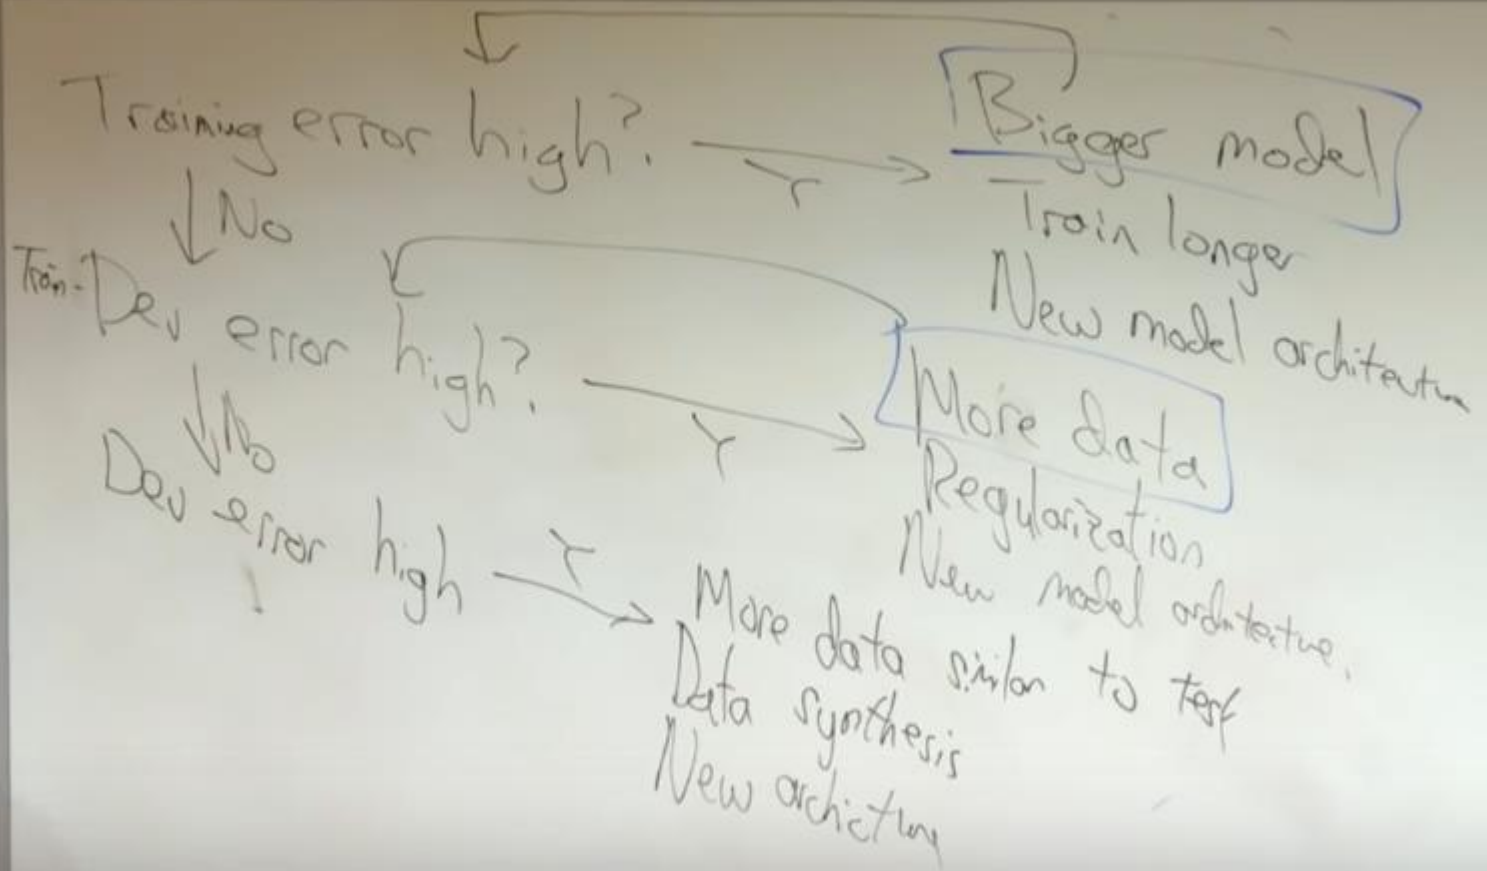 Training error high?
Y
Bigger model
Train longer
New model architecture
No
Train-Dev error high?
Y
More data
Regularization
New model architecture.
No
Dev error high
Y
More data similar to test
Data synthesis
New archicture